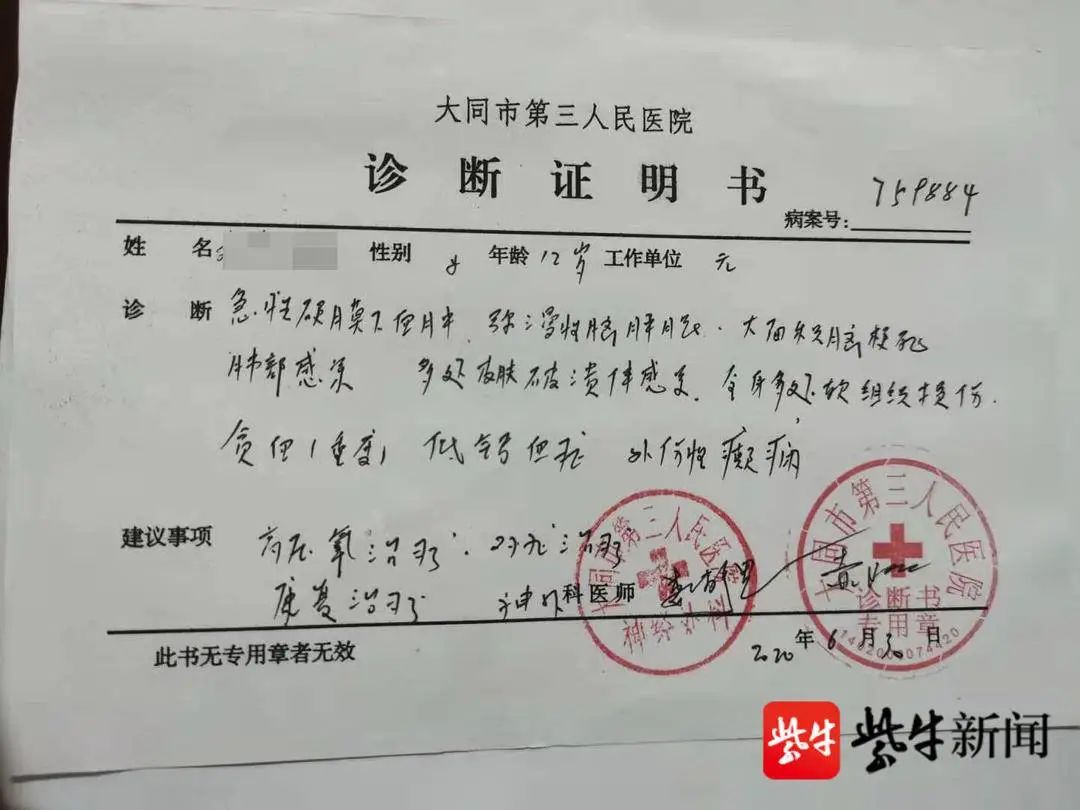 大同市第三人民医院
诊断证明书
病案号: 759884
姓名 性别 女 年龄 12岁 工作单位 无
诊断 急性硬膜下血肿 弥漫性脑肿胀. 大面积脑梗死
肺部感染 多处皮肤破溃伴感染. 全身多处软组织损伤.
贫血(重度) 低钙血症 外伤性癫痫
建议事项 高压氧治疗. 对症治疗
康复治疗 神外科医师
大同市第三人民医院
神经外科
大同市第三人民医院
诊断书
专用章
1402000074420
2020年6月30日
此书无专用章者无效
紫牛 紫牛新闻